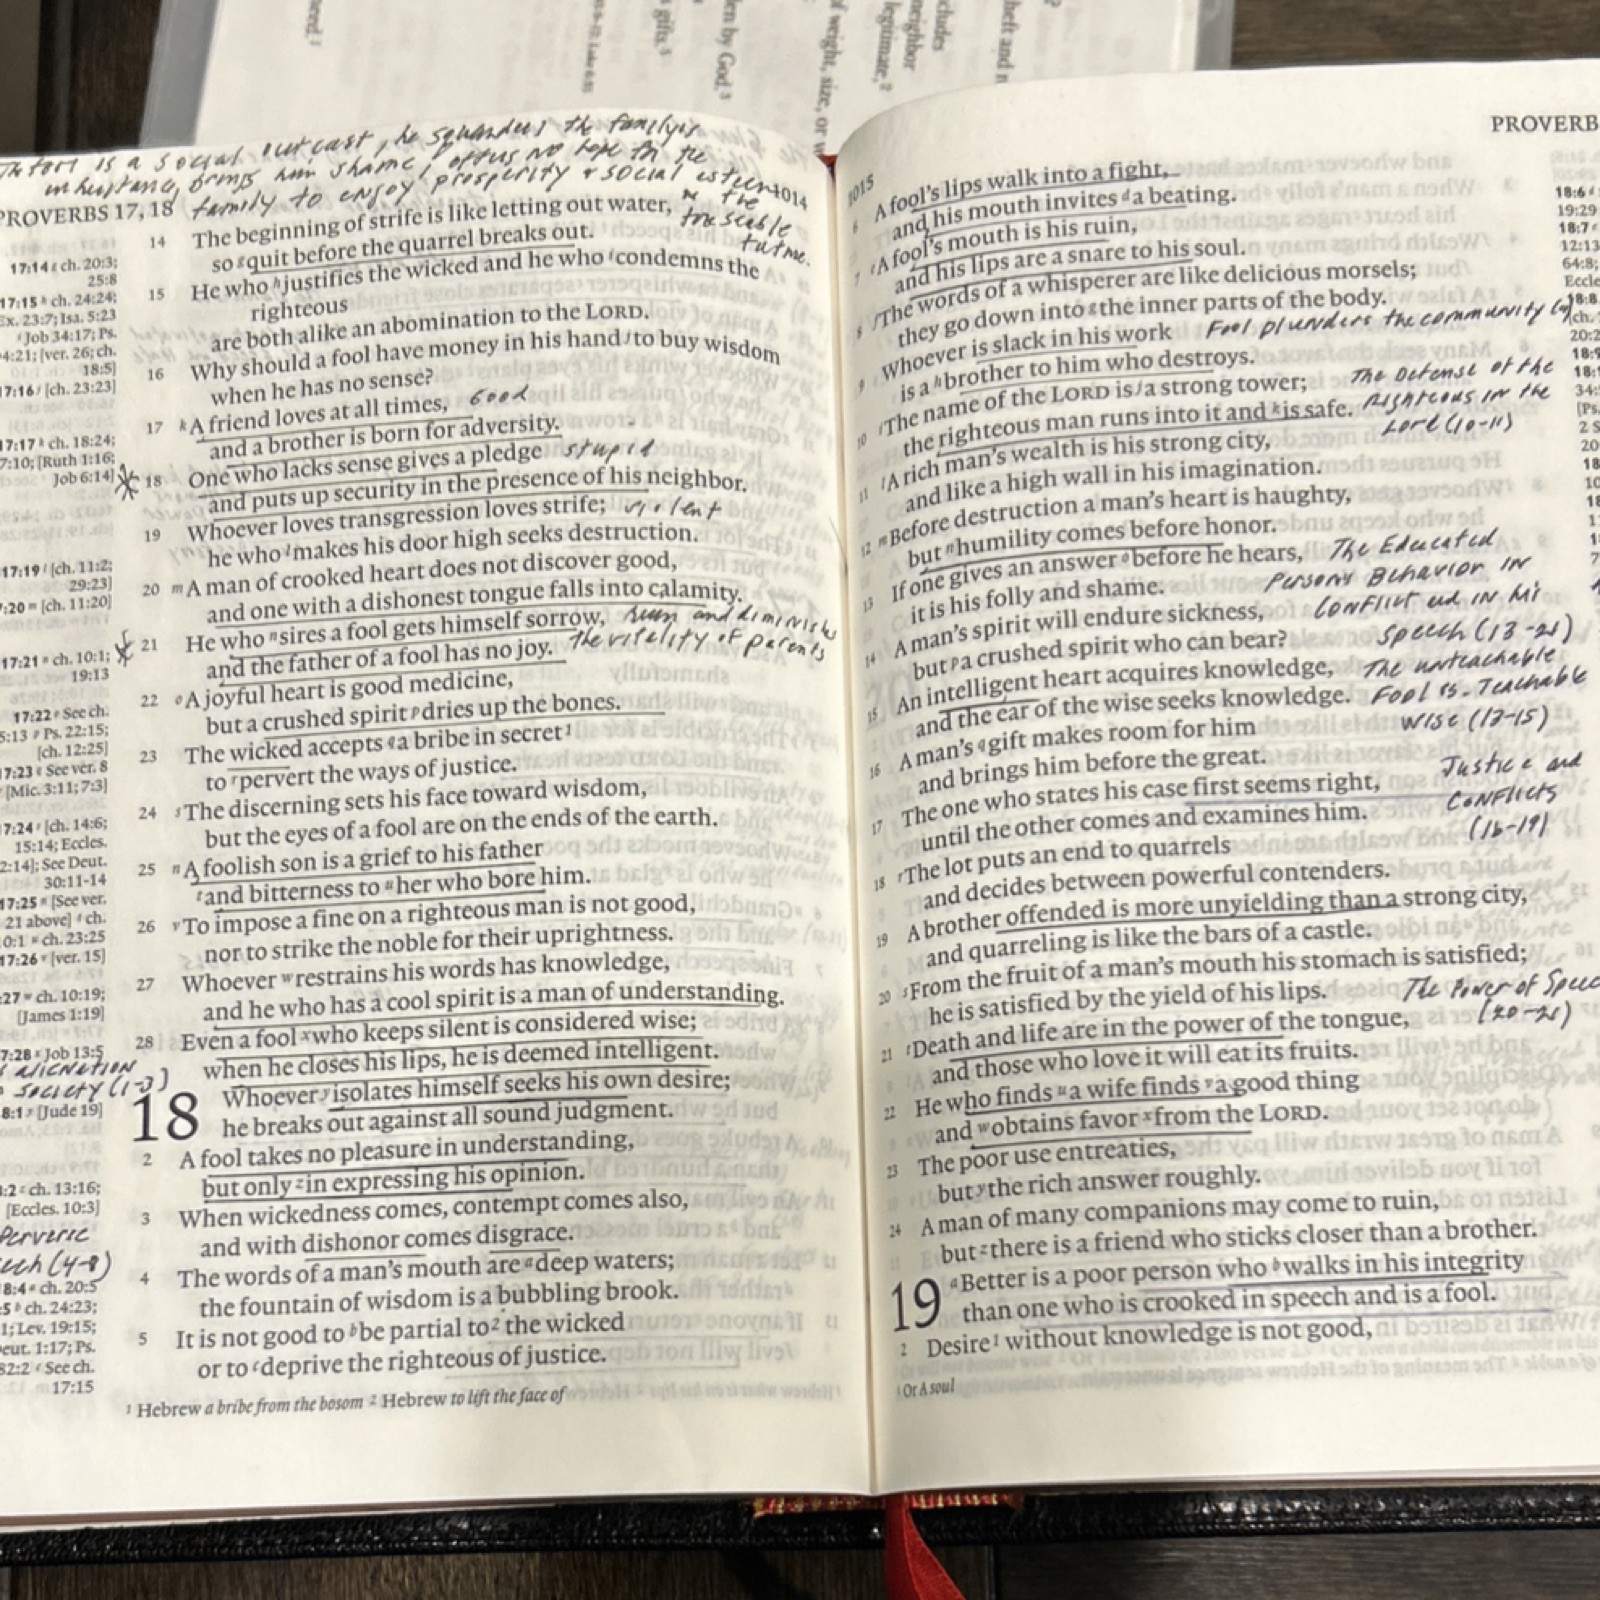 seed.¹
gifts.⁵
den by God.³
of weight, size, or w
legitimate,²
neighbor
cludes
heft and n
is a social outcast, he squanders the family's
inheritance, brings him shame, offers no hope for the
family to enjoy prosperity & social esteem
in the
foreseeable
future.
PROVERBS 17, 18
1014
14 The beginning of strife is like letting out water,
so ᵍquit before the quarrel breaks out.
15 He who ʰjustifies the wicked and he who ⁱcondemns the
righteous
are both alike an abomination to the LORD.
16 Why should a fool have money in his hand ʲto buy wisdom
when he has no sense?
17 ᵏA friend loves at all times, Good
and a brother is born for adversity.
18 One who lacks sense gives a pledge stupid
and puts up security in the presence of his neighbor.
19 Whoever loves transgression loves strife; violent
he who ˡmakes his door high seeks destruction.
20 ᵐA man of crooked heart does not discover good,
and one with a dishonest tongue falls into calamity.
21 He who ⁿsires a fool gets himself sorrow, ruin and diminishes
and the father of a fool has no joy. the vitality of parents
22 ᵒA joyful heart is good medicine,
but a crushed spirit ᵖdries up the bones.
23 The wicked accepts ᑫa bribe in secret¹
to ʳpervert the ways of justice.
24 ˢThe discerning sets his face toward wisdom,
but the eyes of a fool are on the ends of the earth.
25 ⁿA foolish son is a grief to his father
ᵗand bitterness to ᵘher who bore him.
26 ᵛTo impose a fine on a righteous man is not good,
nor to strike the noble for their uprightness.
27 Whoever ʷrestrains his words has knowledge,
and he who has a cool spirit is a man of understanding.
28 Even a fool ˣwho keeps silent is considered wise;
when he closes his lips, he is deemed intelligent.
18 Whoever ʸisolates himself seeks his own desire;
he breaks out against all sound judgment.
2 A fool takes no pleasure in understanding,
but only ᶻin expressing his opinion.
3 When wickedness comes, contempt comes also,
and with dishonor comes disgrace.
4 The words of a man's mouth are ᵃdeep waters;
the fountain of wisdom is a bubbling brook.
5 It is not good to ᵇbe partial to² the wicked
or to ᶜdeprive the righteous of justice.
¹ Hebrew a bribe from the bosom ² Hebrew to lift the face of
17:14 ᵍ ch. 20:3;
25:8
17:15 ʰ ch. 24:24;
Ex. 23:7; Isa. 5:23
ⁱ Job 34:17; Ps.
4:21; [ver. 26; ch.
18:5]
17:16 ʲ [ch. 23:23]
17:17 ᵏ ch. 18:24;
7:10; [Ruth 1:16;
Job 6:14]
17:19 ˡ [ch. 11:2;
29:23]
:20 ᵐ [ch. 11:20]
17:21 ⁿ ch. 10:1;
19:13
17:22 ᵒ See ch.
5:13 ᵖ Ps. 22:15;
[ch. 12:25]
7:23 ᑫ See ver. 8
ʳ [Mic. 3:11; 7:3]
7:24 ˢ [ch. 14:6;
15:14; Eccles.
2:14]; See Deut.
30:11-14
17:25 ⁿ [See ver.
21 above] ᵗ ch.
0:1 ᵘ ch. 23:25
17:26 ᵛ [ver. 15]
:27 ʷ ch. 10:19;
[James 1:19]
7:28 ˣ Job 13:5
alienation
society (1-3)
8:1 ʸ [Jude 19]
:2 ᶻ ch. 13:16;
[Eccles. 10:3]
Perverse
ech (4-8)
8:4 ᵃ ch. 20:5
:5 ᵇ ch. 24:23;
1; Lev. 19:15;
eut. 1:17; Ps.
82:2 ᶜ See ch.
17:15
1015
PROVERB
6 A fool's lips walk into a fight,
and his mouth invites ᵈa beating.
7 ᵉA fool's mouth is his ruin,
and his lips are a snare to his soul.
8 ᶠThe words of a whisperer are like delicious morsels;
they go down into ᵍthe inner parts of the body.
9 Whoever is slack in his work Fool plunders the community
is a ʰbrother to him who destroys.
10 ⁱThe name of the LORD is ʲa strong tower; The Defense of the
the righteous man runs into it and ᵏis safe. Righteous in the
Lord (10-11)
11 ˡA rich man's wealth is his strong city,
and like a high wall in his imagination.
12 ᵐBefore destruction a man's heart is haughty,
but ⁿhumility comes before honor.
13 If one gives an answer ᵒbefore he hears, The Educated
it is his folly and shame. Person's Behavior in
14 A man's spirit will endure sickness, Conflict and in his
but ᵖa crushed spirit who can bear? Speech (13-21)
15 An intelligent heart acquires knowledge, The unteachable
and the ear of the wise seeks knowledge. Fool vs. Teachable
Wise (13-15)
16 A man's ᑫgift makes room for him
and brings him before the great. Justice and
17 The one who states his case first seems right, Conflicts
until the other comes and examines him. (16-19)
18 ʳThe lot puts an end to quarrels
and decides between powerful contenders.
19 A brother offended is more unyielding than a strong city,
and quarreling is like the bars of a castle.
20 ˢFrom the fruit of a man's mouth his stomach is satisfied;
he is satisfied by the yield of his lips. The Power of Speec
21 ᵗDeath and life are in the power of the tongue, (20-21)
and those who love it will eat its fruits.
22 He who finds ᵘa wife finds ᵛa good thing
and ʷobtains favor ˣfrom the LORD.
23 The poor use entreaties,
but ʸthe rich answer roughly.
24 A man of many companions may come to ruin,
but ᶻthere is a friend who sticks closer than a brother.
19 ᵃBetter is a poor person who ᵇwalks in his integrity
than one who is crooked in speech and is a fool.
2 Desire¹ without knowledge is not good,
¹ Or A soul
18:6 ᵈ
19:29
18:7 ᵉ
12:13
64:8;
Eccle
18:8
ch.
20:2
18:9
18:1
34:
[Ps.
2 S
20
18